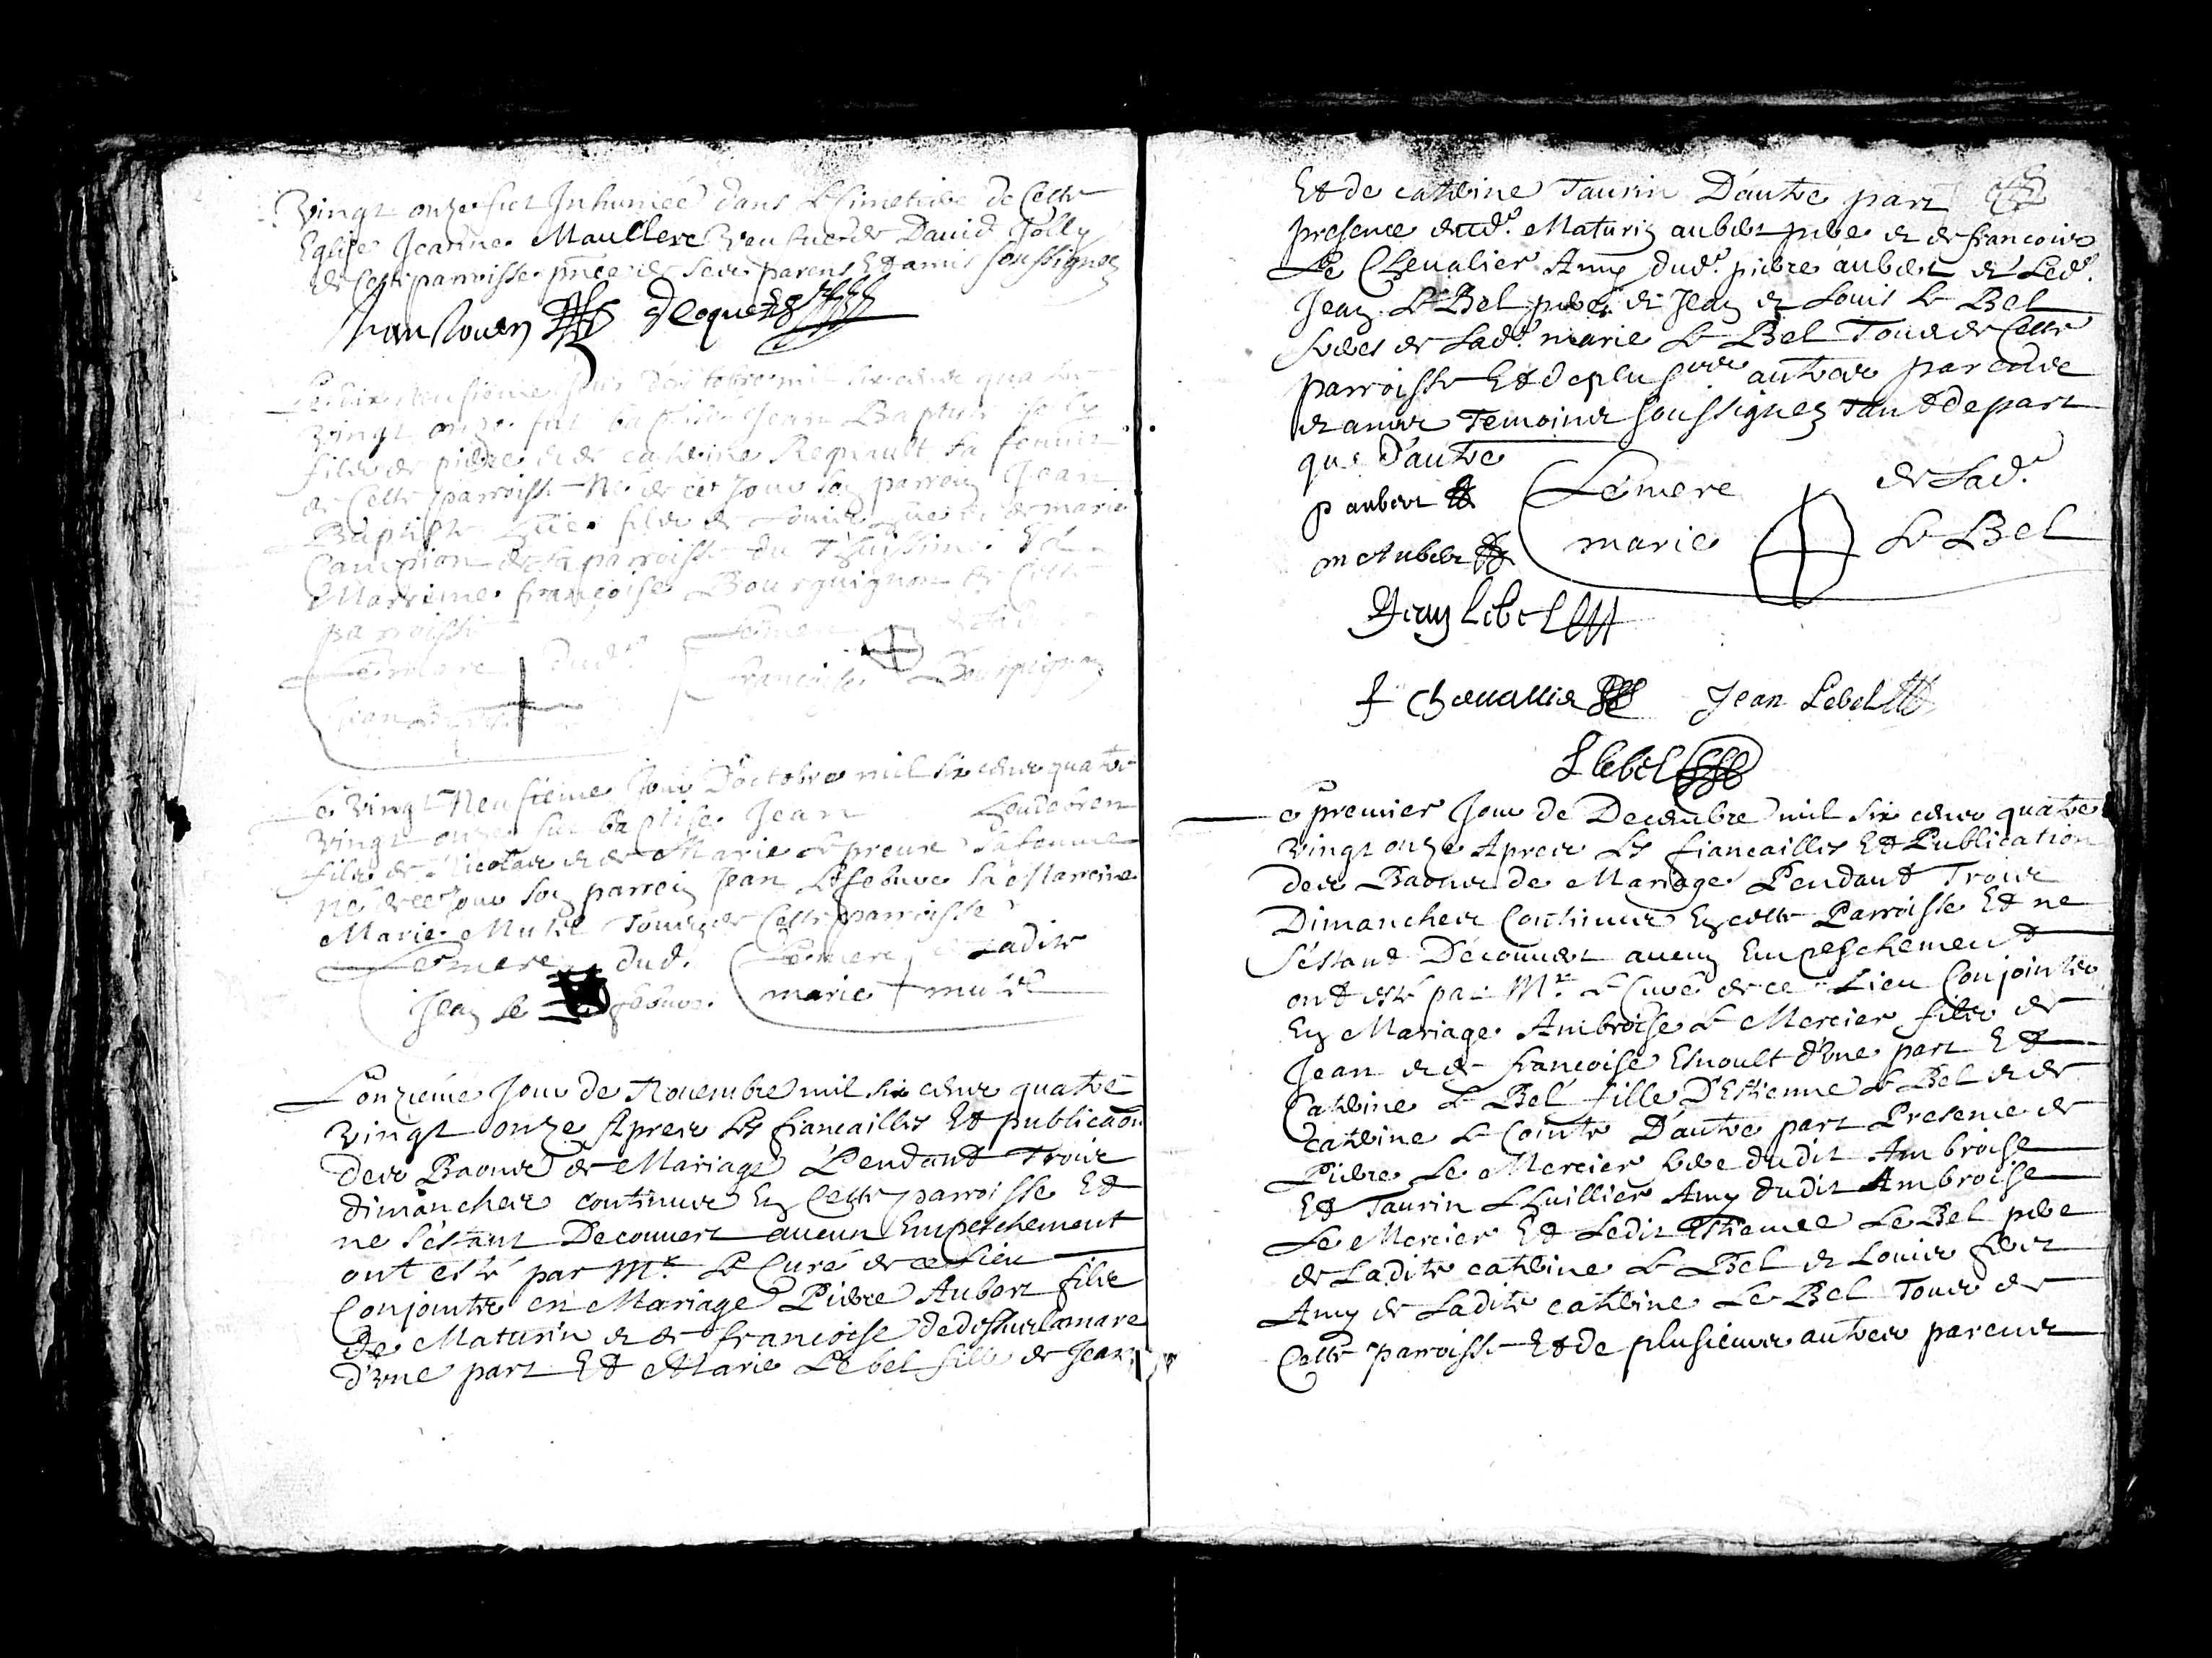 vingt onze fut Inhumée dans le Cimetiere de Cette
Eglise Jeanne Maullere veufue de David Jolly
de Cette parroisse pnce de ses parens Et amis soussignez
Le dix neufieme Jour doctobre mil six cens quatre
vingt onze fut baptisé Jean Baptiste
fils de pierre et de catherine Regnault sa femme
de Cette parroisse Né de ce Jour son parrein Jean
Baptiste fils de Louis et de marie
Campion de la parroisse du Et
Marreine françoise Bourguignon de Cette
parroisse
Le mere dud.
Le mere
Jean
francoise Bourguignon
Le vingt Neufieme Jour D'octobre mil six cens quatre
vingt onze fut baptisé Jean
fils de Nicolas et de Marie le preure sa femme
né de ce Jour son parrein Jean Lefebure sa Mareine
Marie Mutel Tous de Cette parroisse
Le mere dud. Le mere de Ladite
Jean le febure marie mutel
L'onzieme Jour de Novembre mil six cens quatre
vingt onze Apres les fiancailles Et publicaon
des Baons de Mariage Pendant Trois
dimanches continus En Cette parroisse Et
ne s'estant Decouvert aucun Empeschement
ont esté par Mr. Le Curé de ce Lieu
Conjoints en Mariage Pierre Aubert fils
de Maturin et de francoise dedessuslamare
d'vne part Et Marie Le bel fille de Jean
Et de catherine Taurin D'autre part
presence dud. Maturin aubert pere et de francois
Le Chevalier Amy dud. pierre aubert et Led.
Jean Le Bel pere et Jean et Louis le Bel
freres de Lad. marie le Bel Tous de Cette
parroisse Et de plusrs autres parens
et amis Temoins soussignez Tant de part
que D'autre
p aubert
Le mere de Lad.
m Aubert
marie Le Bel
Jean lebel
f Chevallier Jean Lebel
L lebel
Le premier Jour de Decembre mil six cens quatre
vingt onze Apres les fiancailles Et Publication
des Baons de Mariage Pendant Trois
Dimanches Continus En cette Parroisse Et ne
s'estant Découvert aucun Empeschement
ont esté par Mr. Le Curé de ce Lieu Conjoints
En Mariage Ambroise Le Mercier fils de
Jean et de francoise Esnoult d'vne part Et
Catherine Le Bel fille D'Estienne le Bel et de
catherine Le Cointe D'autre part Presence de
Pierre Le Mercier frere dudit Ambroise
Et Taurin Lhuillier Amy dudit Ambroise
Le Mercier Et Ledit Estienne Le Bel pere
de Ladite catherine Le Bel et Louis
Amy de Ladite catherine Le Bel Tous de
Cette parroisse Et de plusieurs autres parens